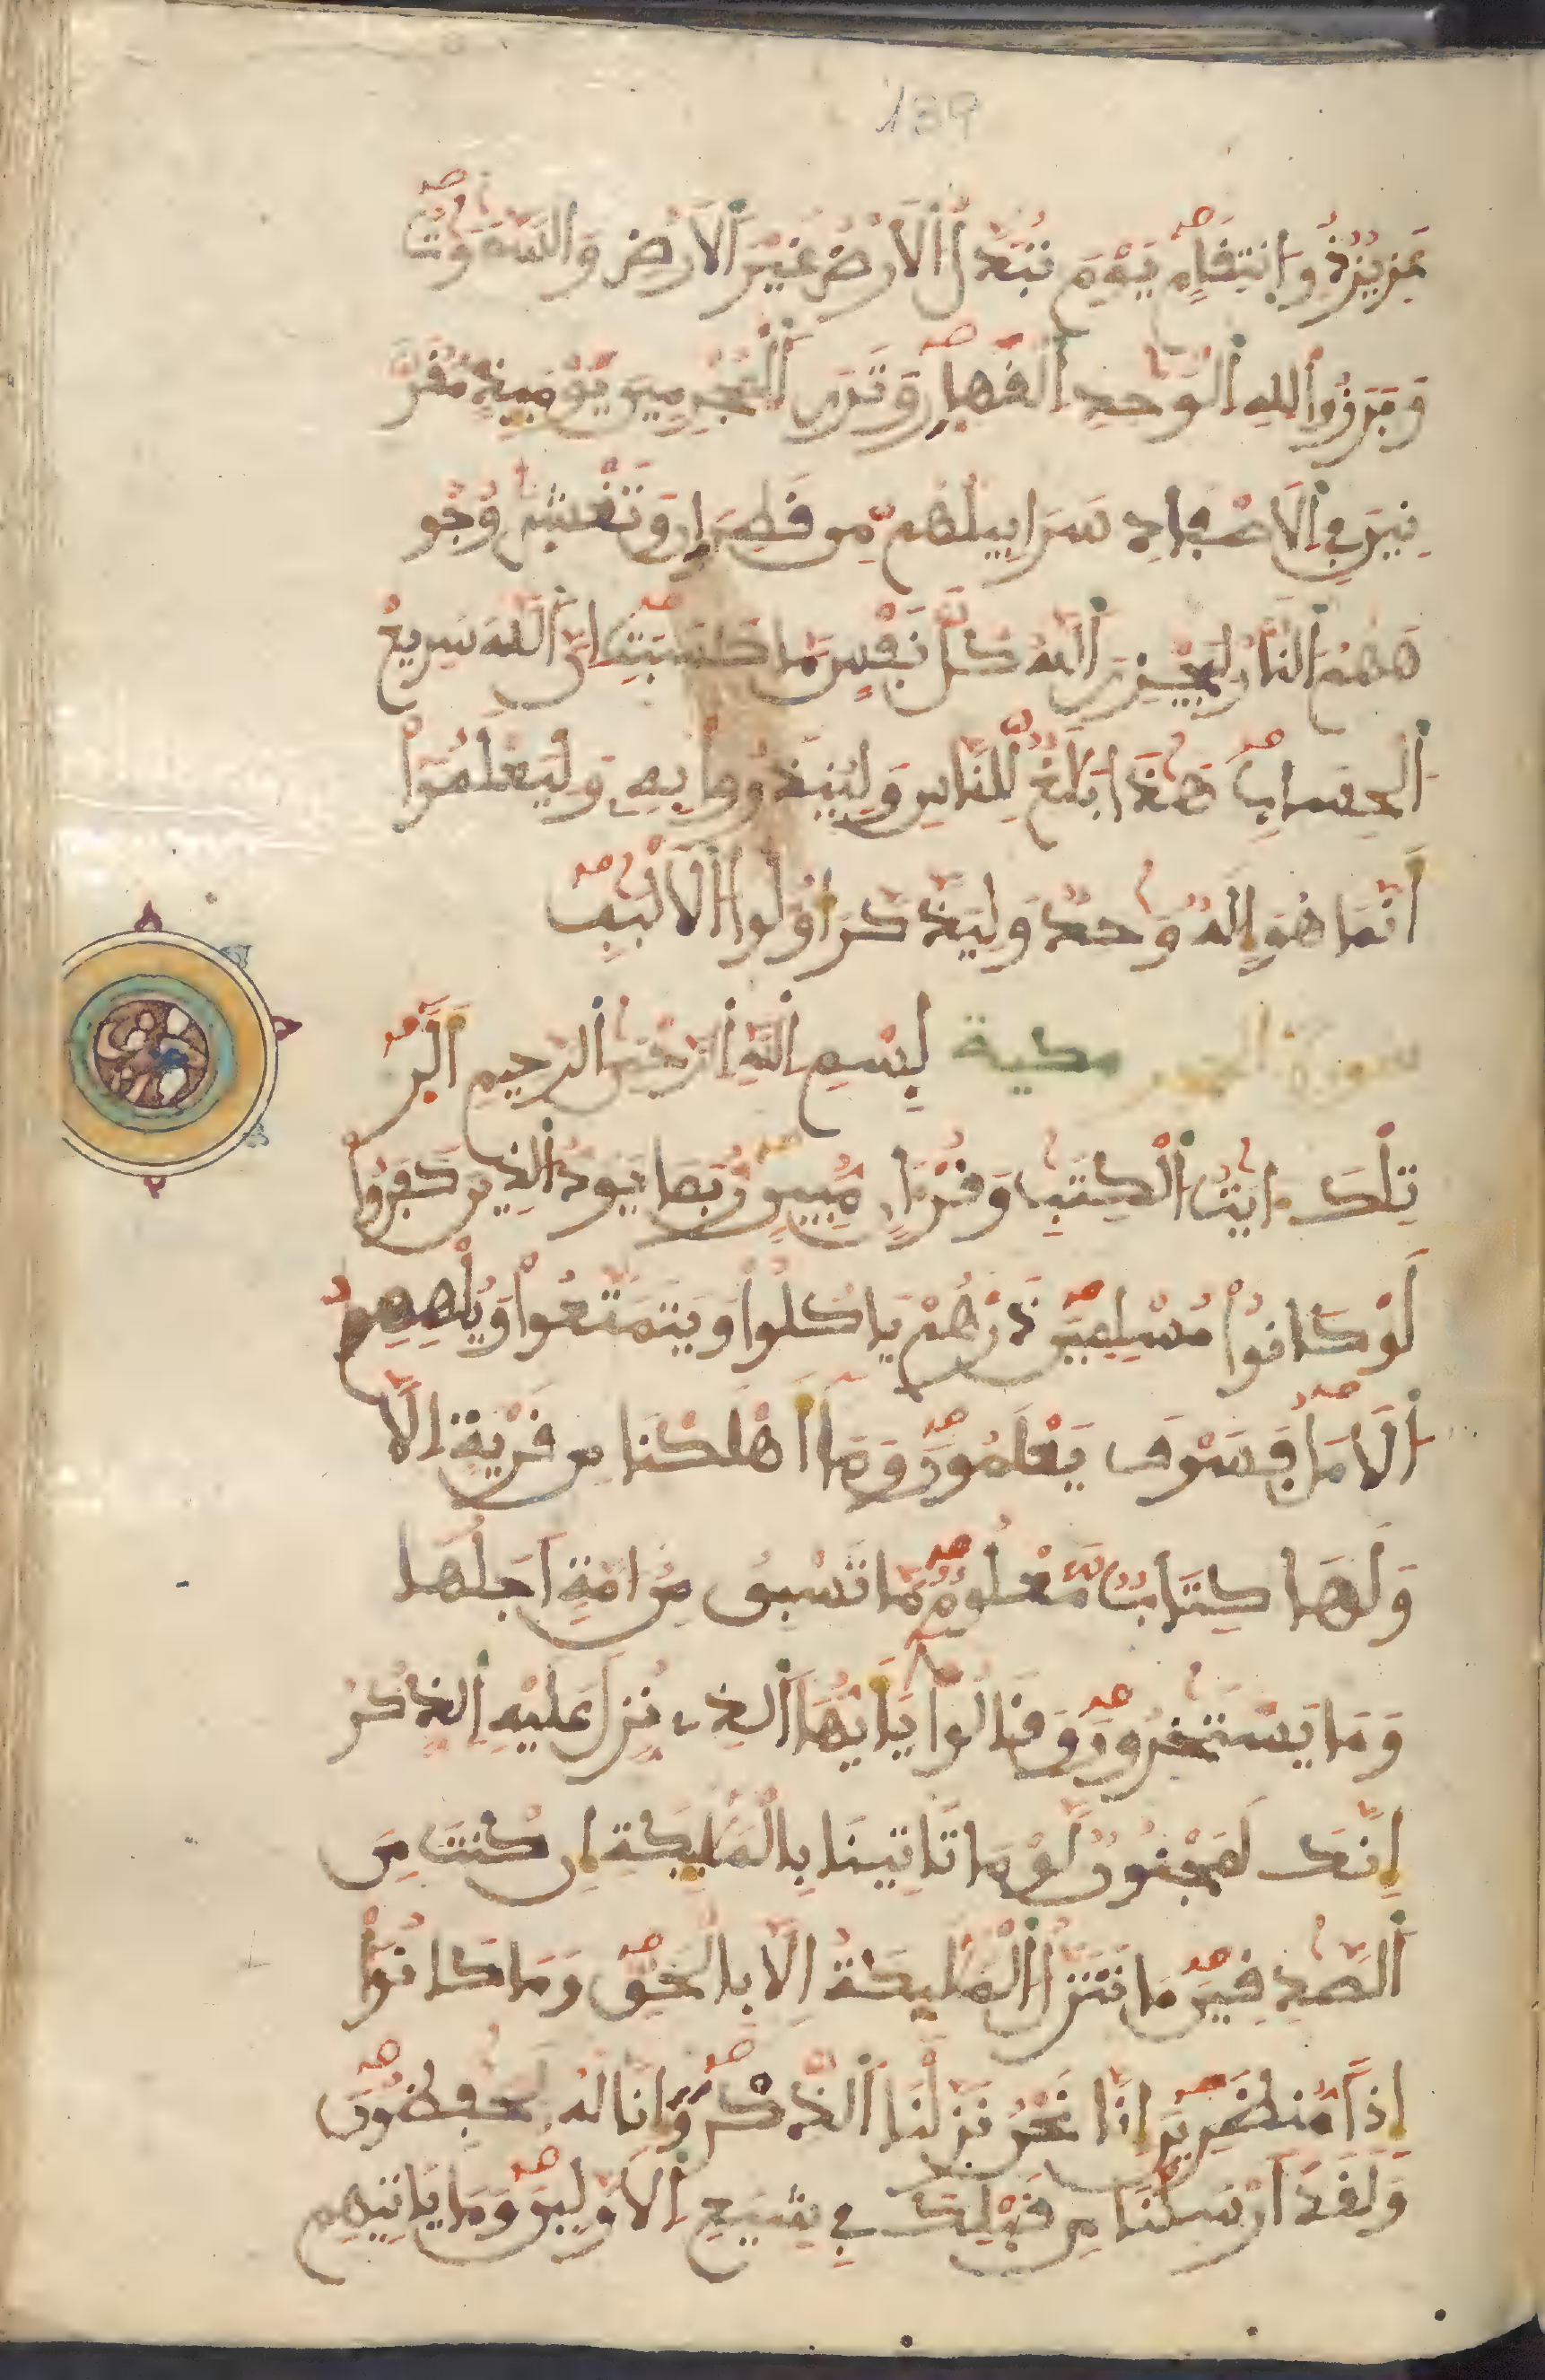 139
عَزِيزٌ ذُو اِنتِقَامٍ يَوْمَ تُبَدَّلُ اُلَارْضُ غَيْرَ اَلَارْضِ وَالسَّمَٰوَٰتُ
وَبَرَزُواْ لِلهِ اِلْوَٰحِدِ اِلْقَهّ۪ارِ وَتَرَى اَلْمُجْرِمِينَ يَوْمَئِذٍ مُّقَرَّ
نِينَ فِي اِلَاصْفَادِ سَرَابِيلُهُم مِّن قَطِرَانٍ وَتَغْشَىٰ وُجُو
هَهُمُ اُلنَّارُ لِيَجْزِيَ اَللَّهُ كُلَّ نَفْسٍ مَّا كَسَبَتِ اِنَّ اَللَّهَ سَرِيعُ
اُلْحِسَابِ هَٰذَا بَلَٰغٌ لِّلنَّاسِ وَلِيُنذَرُواْ بِهِۦ وَلِيَعْلَمُوٓاْ
أَنَّمَا هُوَ إِلَٰهٌ وَٰحِدٌ وَلِيَذَّكَّرَ أُوْلُواْ اُلَالْبَٰبِ
سورة الحجر مكية بِسْمِ اِللَّهِ اِلرَّحْمَٰنِ اِلرَّحِيمِ أَلَٓرۚ
تِلْكَ ءَايَٰتُ اُلْكِتَٰبِ وَقُرْءَانٍ مُّبِينٍ رُّبَمَا يَوَدُّ اُلذِينَ كَفَرُواْ
لَوْ كَانُواْ مُسْلِمِينَ ذَرْهُمْ يَاكُلُواْ وَيَتَمَتَّعُواْ وَيُلْهِهِمُ
اُلَامَلُ فَسَوْفَ يَعْلَمُونَ وَمَآ أَهْلَكْنَا مِن قَرْيَةٍ اِلَّا
وَلَهَا كِتَابٌ مَّعْلُومٌ مَّا تَسْبِقُ مِنُ ا۟مَّةٍ اَجَلَهَا
وَمَا يَسْتَٰخِرُونَ وَقَالُواْ يَٰٓأَيُّهَا اَلذِي نُزِّلَ عَلَيْهِ اِلذِّكْرُ
إِنَّكَ لَمَجْنُونٌ لَّوْ مَا تَاتِينَا بِالْمَلَٰٓئِكَةِ إِن كُنتَ مِنَ
اَلصَّٰدِقِينَ مَا تَنَزَّلُ اُلْمَلَٰٓئِكَةُ إِلَّا بِالْحَقِّ وَمَا كَانُوٓاْ
إِذاً مُّنظَرِينَ إِنَّا نَحْنُ نَزَّلْنَا اَلذِّكْرَ وَإِنَّا لَهُۥ لَحَٰفِظُونَ
وَلَقَدَ اَرْسَلْنَا مِن قَبْلِكَ فِي شِيَعِ اِلَاوَّلِينَ وَمَا يَاتِيهِم